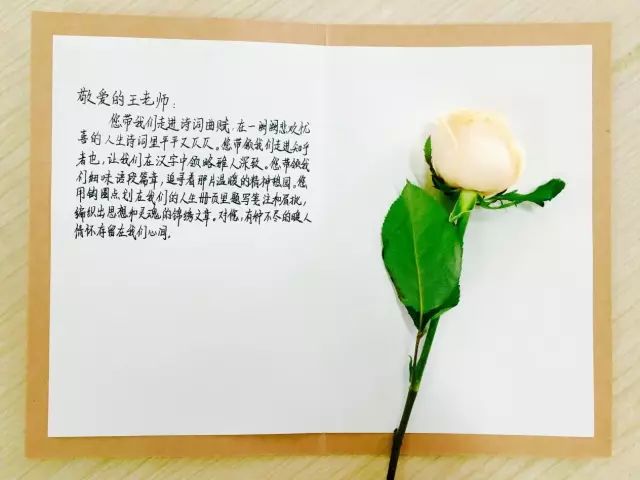 敬爱的王老师:
您带我们走进诗词曲赋,在一阕阕悲欢忧
喜的人生诗词里平平仄仄。您带领我们走进知乎
者也,让我们在汉字中领略雅人深致。您带领我
们细味语段篇章,追寻着那片温暖的精神桃园。您
用钩圈点划在我们的人生册页里题写笺注和眉批,
编织出思想和灵魂的锦绣文章。对您,有种不尽的暖人
情怀存留在我们心间。